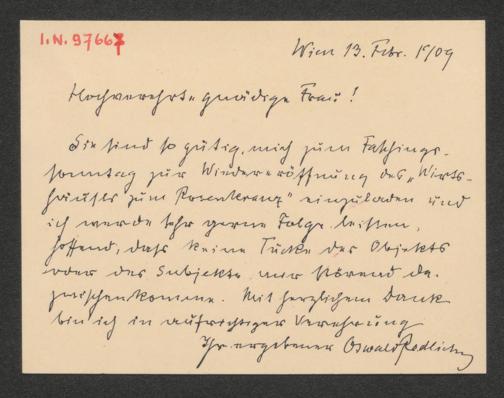 I.N. 97667
Wien 13. Febr. 1909
Hochverehrte gnädige Frau!
Sie sind so gütig, mich zum Faschings-
sonntag zur Wiedereröffnung des „Wirts-
häusls zum Rosenkranz" einzuladen und
ich werde sehr gerne Folge leisten,
hoffend, daß keine Tücke des Objekts
oder des Subjekts mir störend da-
zwischenkomme. Mit herzlichem Dank
bin ich in aufrichtiger Verehrung
Ihr ergebener Oswald Redlich